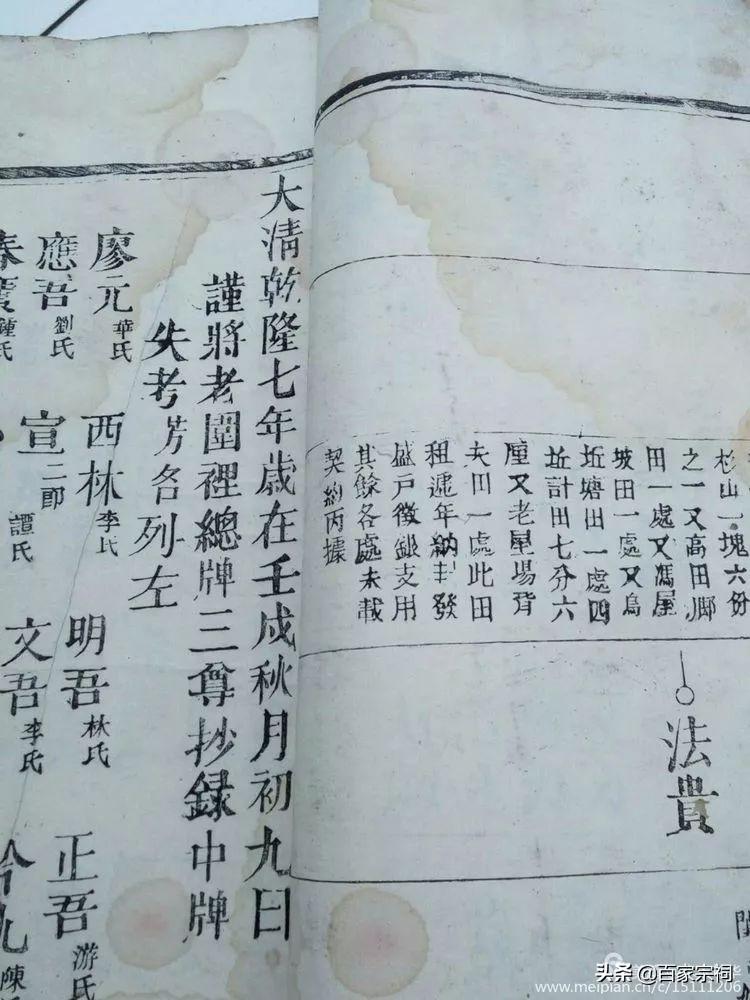 杉山一塊六份
之一又高田𡋾
田一處又馮屋
坡田一處又烏
坵塘田一處四
坵計田七分六
厘又老屋場背
夫田一處此田
租遞年納丰發
盛戶徵銀支用
其餘各處未載
契約丙據
法貴
大清乾隆七年歲在壬戌秋月初九日
謹將老圍裡總牌三尊抄錄中牌
失考芳名列左
廖元華氏 西林李氏 明吾林氏 正吾游氏
應吾劉氏 宣二郎譚氏 文吾李氏
鍾氏
九陳
头条@百家宗祠
www.meipian.cn/c/15111206